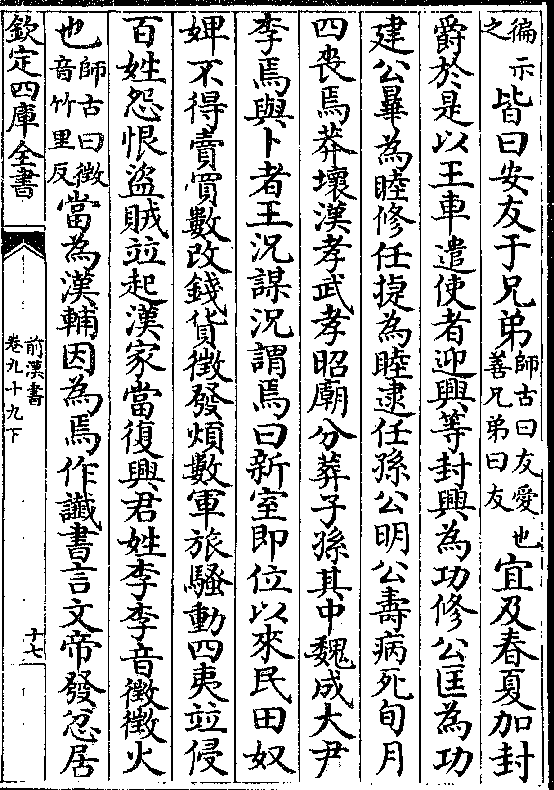 徧示之皆曰安友于兄弟師古曰友愛也善兄弟曰友宜及春夏加封
爵於是以王車遣使者迎興等封興為功修公匡為功
建公㬥為睦修任㨗為睦逮任孫公明公壽病死旬月
四喪焉莽壞漢孝武孝昭廟分葬子孫其中魏成大尹
李焉與卜者王況謀況謂焉曰新室即位以來民田奴
婢不得賣買數改錢貨徵發煩數軍旅騷動四夷並侵
百姓怨恨盜賊並起漢家當復興君姓李李音徵徵火
也師古曰徵音竹里反當為漢輔因為焉作讖書言文帝發忿居
欽定四庫全書
前漢書
卷九十九下
十七